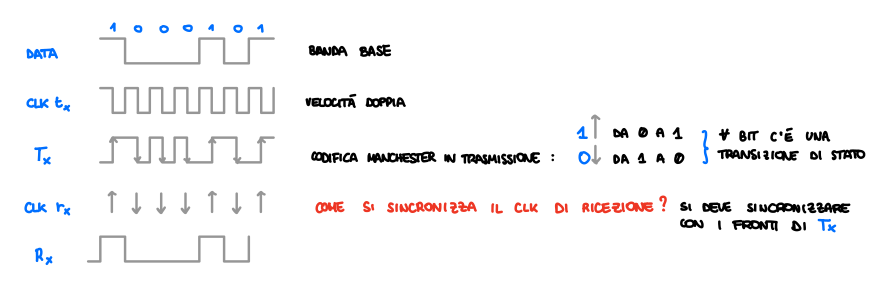 1 0 0 0 1 0 1
DATA BANDA BASE
CLK tx VELOCITÁ DOPPIA
Tx CODIFICA MANCHESTER IN TRASMISSIONE : 1↑ DA 0 A 1
0↓ DA 1 A 0
∀ BIT C'É UNA
TRANSIZIONE DI STATO
CLK rx ↑ ↓ ↓ ↓ ↑ ↓ ↑ COME SI SINCRONIZZA IL CLK DI RICEZIONE ? SI DEVE SINCRONIZZARE
CON I FRONTI DI Tx
Rx